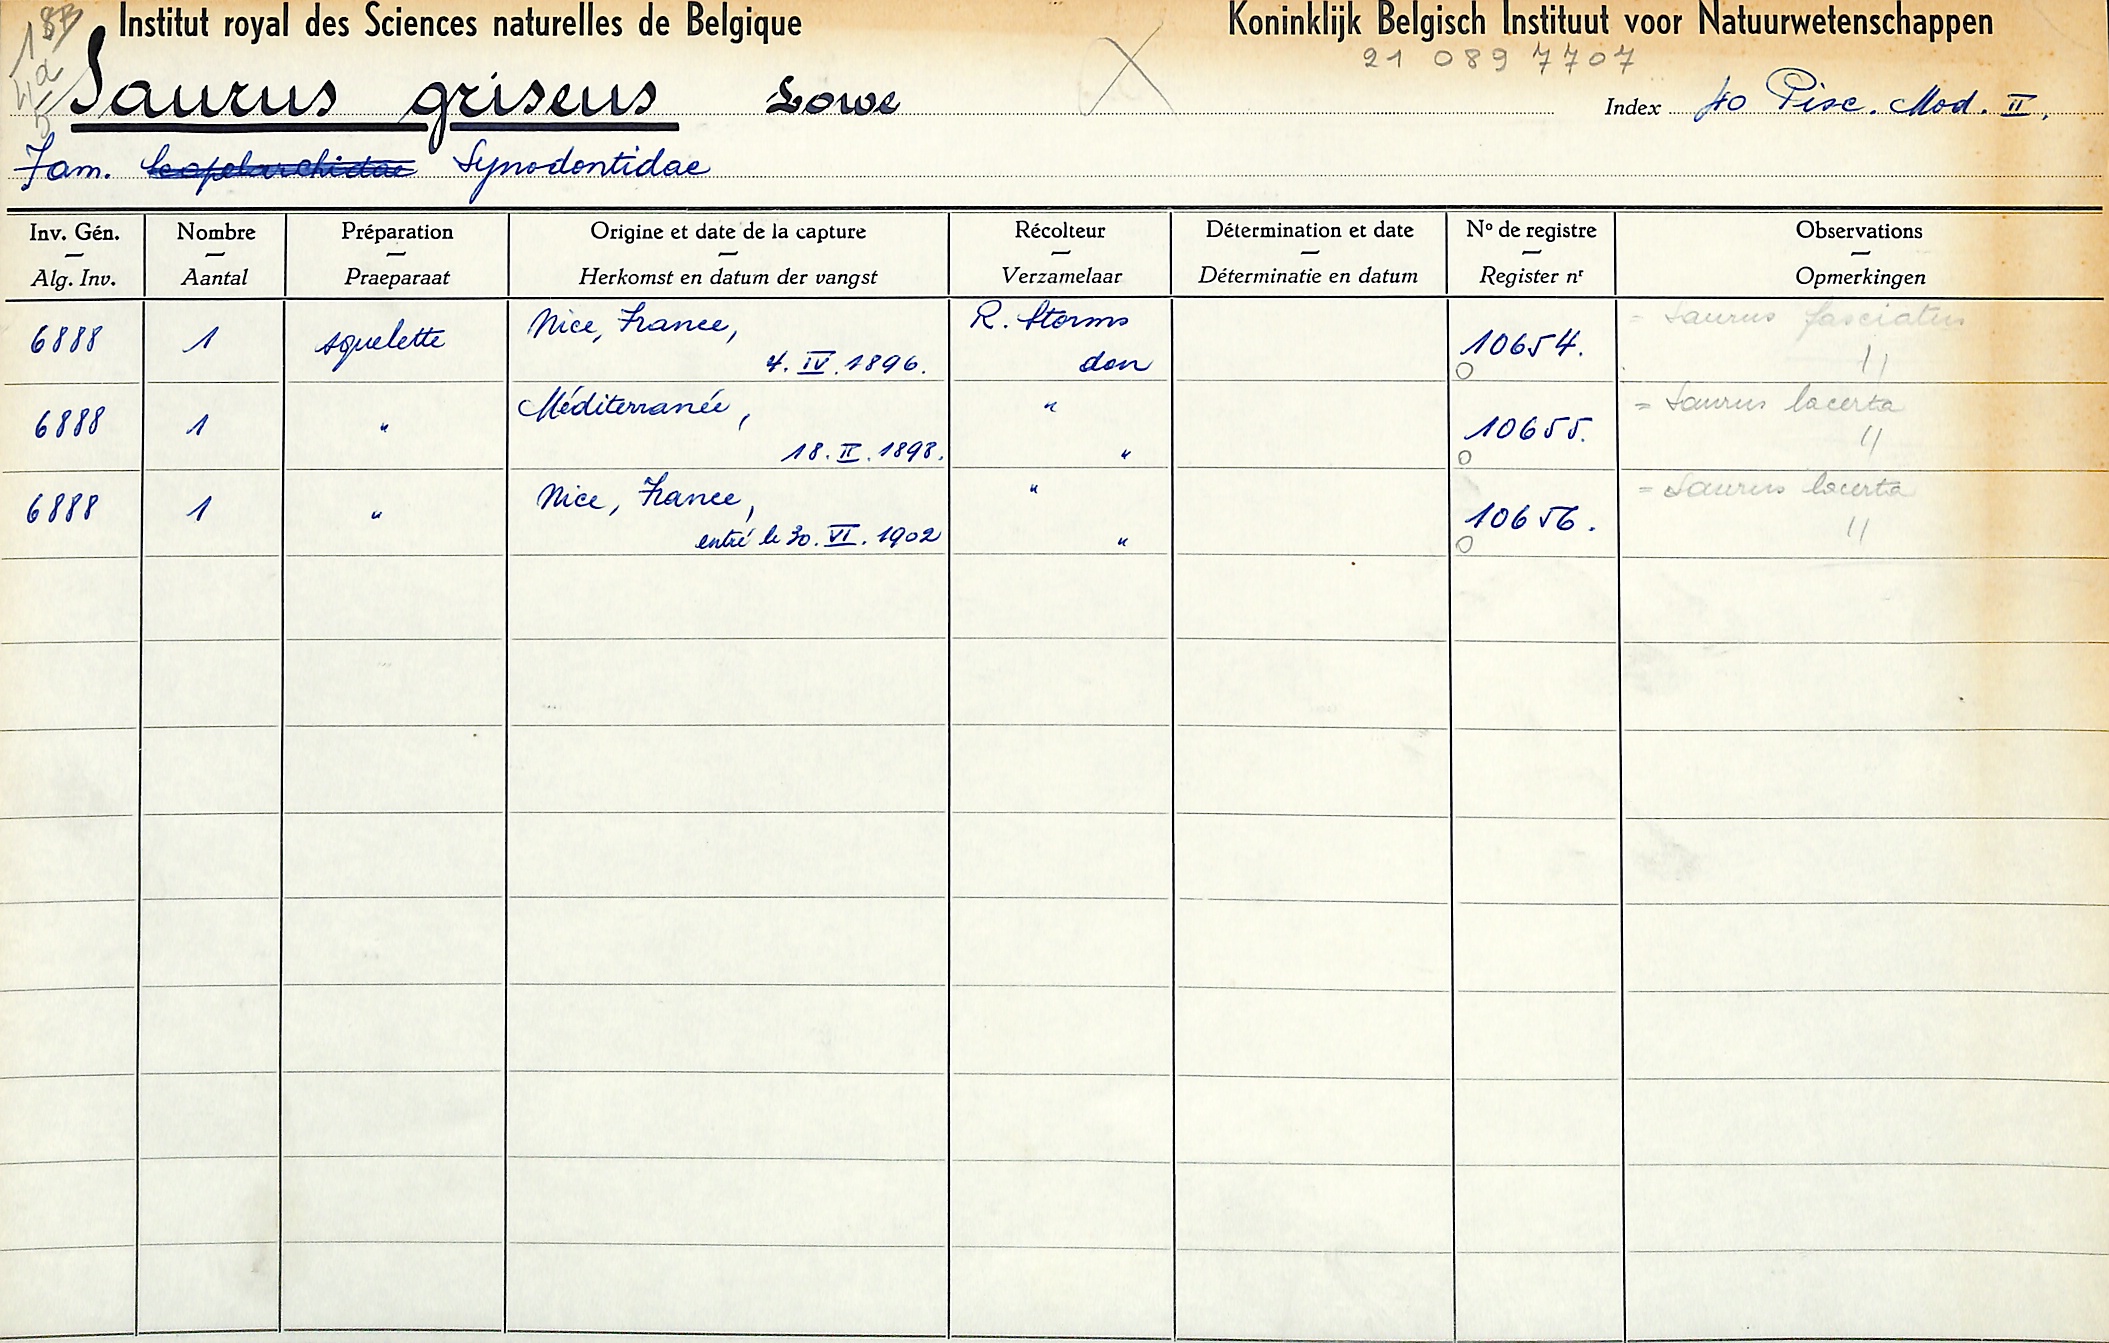 Institut royal des Sciences naturelles de Belgique Koninklijk Belgisch Instituut voor Natuurwetenschappen
21 089 7707
Saurus griseus Lowe Index 40 Pisc. Mod. II.
Fam. Scopelarchidae Synodontidae
Inv. Gén. Nombre Préparation Origine et date de la capture Récolteur Détermination et date No de registre Observations
Alg. Inv. Aantal Praeparaat Herkomst en datum der vangst Verzamelaar Déterminatie en datum Register nr Opmerkingen
6888 1 squelette Nice, France, R. Storms 10654. = Saurus fasciatus
4. IV. 1896. don "
6888 1 " Méditerranée, " 10655. = Saurus lacerta
18. II. 1898. " "
6888 1 " Nice, France, " 10656. = Saurus lacerta
entré le 30. VI. 1902 " "